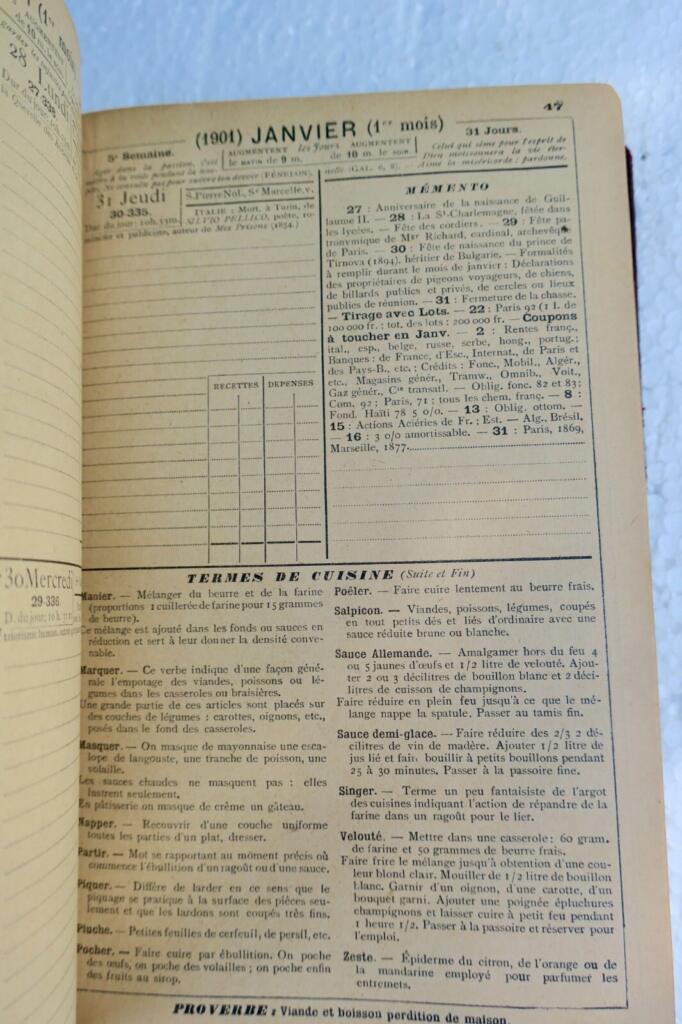 28
27-338
30 Mercredi
29-336
47
(1901) JANVIER (1er mois)
5e Semaine.
AUGMENTENT les Jours AUGMENTENT
le MATIN de 9 m. de 10 m. le soir
31 Jours.
Agir dans la passion, c'est
mettre à la voile pendant la
Ne connaître pas pour suivre ton devoir (FÉNELON).
Celui qui sème pour l'esprit de
Dieu moissonnera la vie éter-
nelle (GAL. 6, 8). — Aime la miséricorde: pardonne.
31 Jeudi
30-335.
Duc du jour: 10h. 33m.
S. Pierre Nol., Ste Marcelle, v.
ITALIE : Mort, à Turin, de
SILVIO PELLICO, poète, ro-
mancier et publiciste, auteur de Mes Prisons (1854.)
RECETTES DÉPENSES
MÉMENTO
27 : Anniversaire de la naissance de Guil-
laume II. — 28 : La St-Charlemagne, fêtée dans
les lycées. — Fête des cordiers. — 29 : Fête pa-
tronymique de Mgr Richard, cardinal, archevêque
de Paris. — 30 : Fête de naissance du prince de
Tirnova (1894), héritier de Bulgarie. — Formalités
à remplir durant le mois de janvier : Déclarations
des propriétaires de pigeons voyageurs, de chiens,
de billards publics et privés, de cercles ou lieux
publics de réunion. — 31 : Fermeture de la chasse.
— Tirage avec Lots. — 22 : Paris 92 (1 l. de
100 000 fr. ; tot. des lots : 200 000 fr. — Coupons
à toucher en Janv. — 2 : Rentes franç.,
ital., esp., belge, russe, serbe, hong., portug.;
Banques : de France, d'Esc., Internat., de Paris et
des Pays-B., etc. ; Crédits : Fonc., Mobil., Algér.,
etc., Magasins génér., Tramw., Omnib., Voit.,
Gaz génér., Cie transatl. — Oblig. fonc. 82 et 83;
Com. 92 ; Paris, 71 ; tous les chem. franç. — 8 :
Fond. Haïti 78 5 o/o. — 13 : Oblig. ottom. —
15 : Actions Aciéries de Fr. ; Est. — Alg., Brésil.
— 16 : 3 o/o amortissable. — 31 : Paris, 1869,
Marseille, 1877.
TERMES DE CUISINE (Suite et Fin)
Manier. — Mélanger du beurre et de la farine
(proportions 1 cuillerée de farine pour 15 grammes
de beurre).
Ce mélange est ajouté dans les fonds ou sauces en
réduction et sert à leur donner la densité conve-
nable.
Marquer. — Ce verbe indique d'une façon géné-
rale l'empotage des viandes, poissons ou lé-
gumes dans les casseroles ou braisières.
Une grande partie de ces articles sont placés sur
des couches de légumes : carottes, oignons, etc.,
posés dans le fond des casseroles.
Masquer. — On masque de mayonnaise une esca-
lope de langouste, une tranche de poisson, une
volaille.
Les sauces chaudes ne masquent pas : elles
lustrent seulement.
En pâtisserie on masque de crème un gâteau.
Napper. — Recouvrir d'une couche uniforme
toutes les parties d'un plat, dresser.
Partir. — Mot se rapportant au moment précis où
commence l'ébullition d'un ragoût ou d'une sauce.
Piquer. — Diffère de larder en ce sens que le
piquage se pratique à la surface des pièces seu-
lement et que les lardons sont coupés très fins.
Pluche. — Petites feuilles de cerfeuil, de persil, etc.
Pocher. — Faire cuire par ébullition. On poche
des œufs, on poche des volailles ; on poche enfin
des fruits au sirop.
Poêler. — Faire cuire lentement au beurre frais.
Salpicon. — Viandes, poissons, légumes, coupés
en tout petits dés et liés d'ordinaire avec une
sauce réduite brune ou blanche.
Sauce Allemande. — Amalgamer hors du feu 4
ou 5 jaunes d'œufs et 1/2 litre de velouté. Ajou-
ter 2 ou 3 décilitres de bouillon blanc et 2 déci-
litres de cuisson de champignons.
Faire réduire en plein feu jusqu'à ce que le mé-
lange nappe la spatule. Passer au tamis fin.
Sauce demi-glace. — Faire réduire des 2/3 2 dé-
cilitres de vin de madère. Ajouter 1/2 litre de
jus lié et faire bouillir à petits bouillons pendant
25 à 30 minutes. Passer à la passoire fine.
Singer. — Terme un peu fantaisiste de l'argot
des cuisines indiquant l'action de répandre de la
farine dans un ragoût pour le lier.
Velouté. — Mettre dans une casserole : 60 gram.
de farine et 50 grammes de beurre frais.
Faire frire le mélange jusqu'à obtention d'une cou-
leur blond clair. Mouiller de 1/2 litre de bouillon
blanc. Garnir d'un oignon, d'une carotte, d'un
bouquet garni. Ajouter une poignée épluchures
champignons et laisser cuire à petit feu pendant
1 heure 1/2. Passer à la passoire et réserver pour
l'emploi.
Zeste. — Épiderme du citron, de l'orange ou de
la mandarine employé pour parfumer les
entremets.
PROVERBE : Viande et boisson perdition de maison.